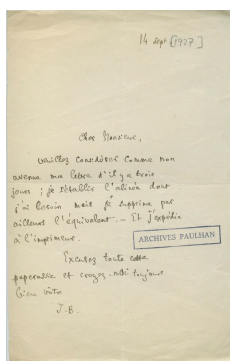 14 Sept [1927]
Cher Monsieur,
veuillez considérer comme non
avenue ma lettre d'il y a trois
jours ; je rétablis l'alinéa dont
j'ai besoin mais je supprime par
ailleurs l'équivalent. – Et j'expédie
à l'imprimeur.
ARCHIVES PAULHAN
Excusez toute cette
paperasserie et croyez-moi toujours
bien vôtre
J. B.